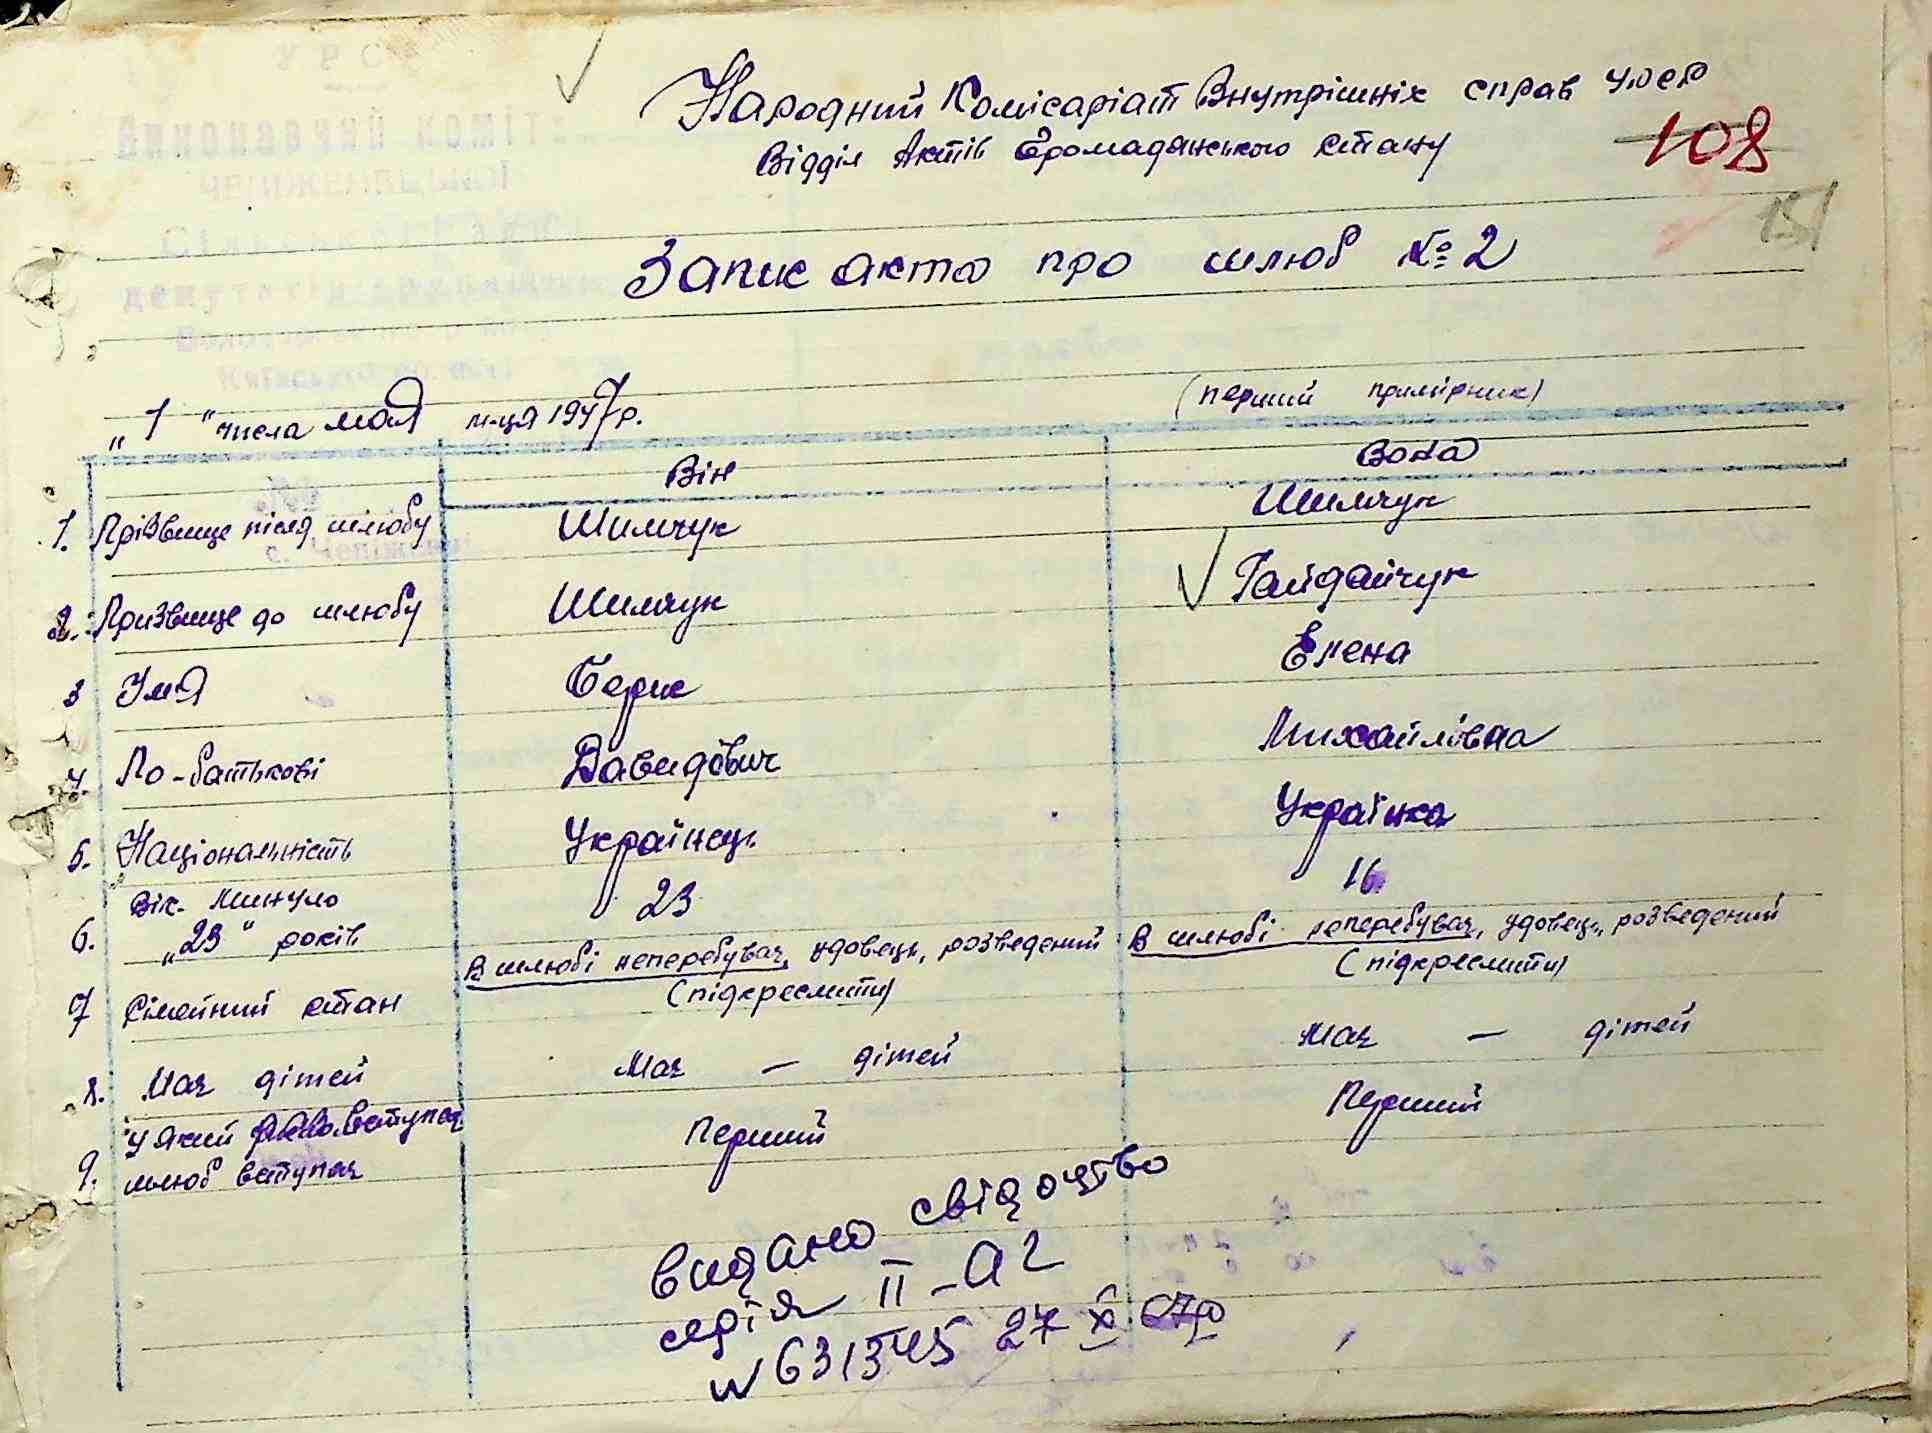 Народний Комісаріат Внутрішніх справ УРСР
Відділ Актів Громадянського стану
108
151
Запис акта про шлюб № 2
(перший примірник)
„1" числа мая м-ця 1947 р.
Він
Вона
1. Прізвище після шлюбу Шимчук Шимчук
2. Призвище до шлюбу Шимчук Гайдайчук
3 Имя Борис Елена
4. По-батькові Давидович Михайлівна
5. Національність Українець Українка
Вік. Минуло
6. „23" років 23 16
7 Сімейний стан В шлюбі неперебував, удовець, розведений В шлюбі неперебував, удовець, розведений
(підкреслити) (підкреслити)
8. Має дітей Має — дітей Має — дітей
У який вступає
9. шлюб вступає Перший Перший
видано свідоцтво
серія II-А2
N 631345 27 X